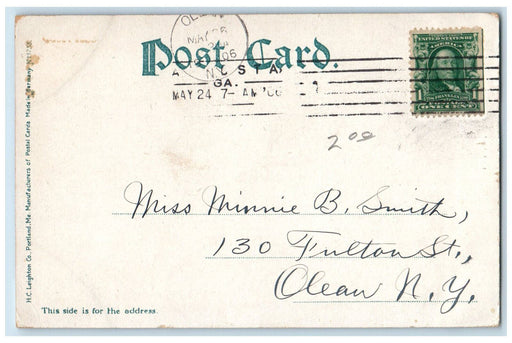 OLEAN
MAY 25
06
N.Y.
Post Card.
AUGUSTA
GA.
MAY 24 7-AM '06
UNITED STATES OF AMERICA
FRANKLIN
ONE CENT
2 00
Miss Minnie B. Smith,
130 Fulton St.,
Olean N.Y.
This side is for the address.
H.C. Leighton Co. Portland, Me. Manufacturers of Postal Cards Made in Germany